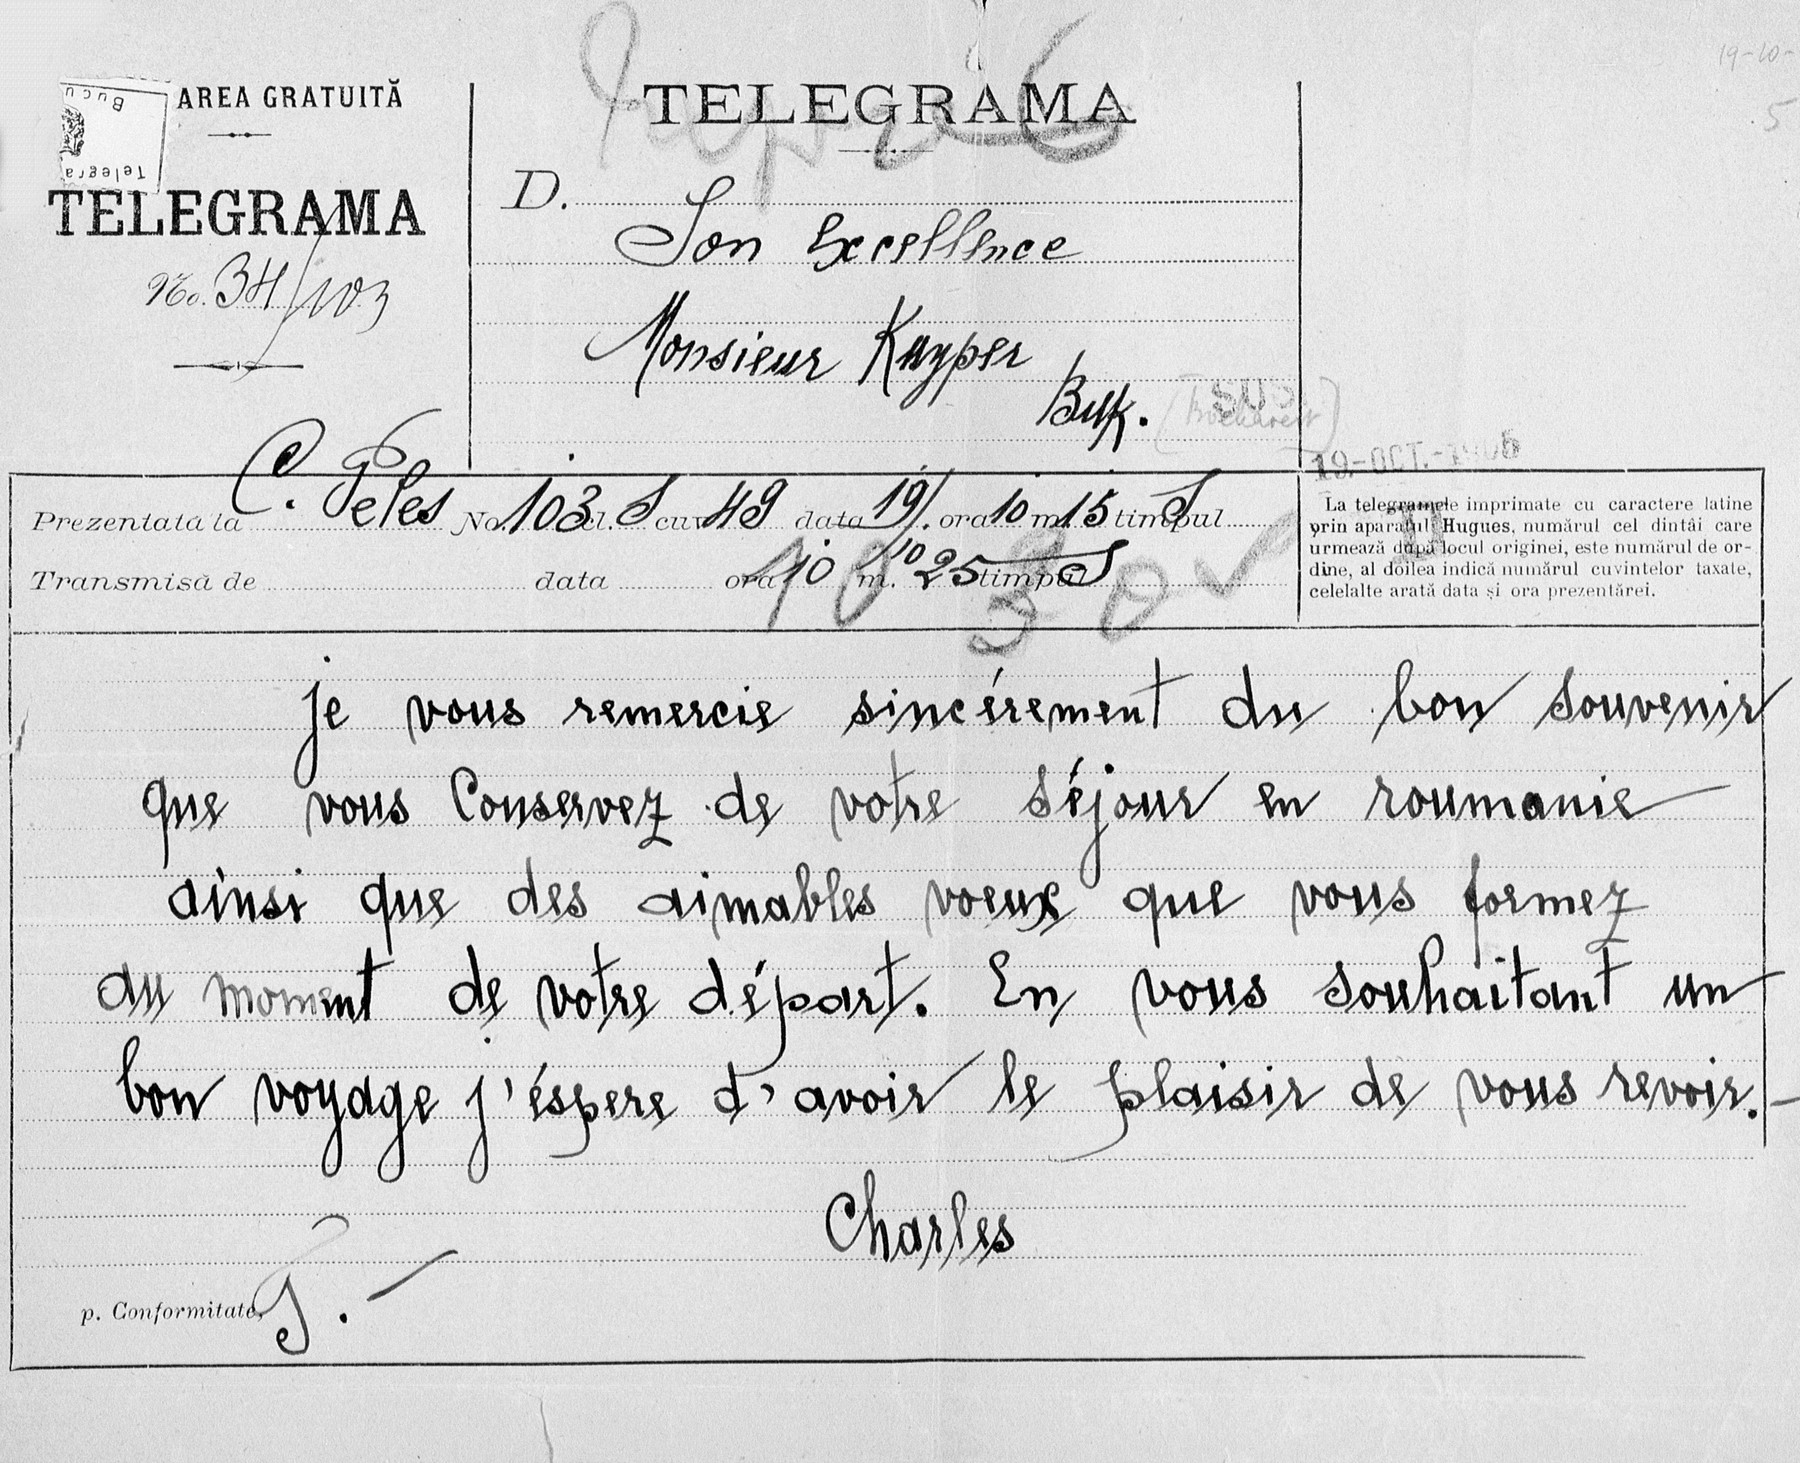 AREA GRATUITĂ
Bucu
Telegra
TELEGRAMA
No. 34/103
TELEGRAMA
D.
Son Excellence
Monsieur Kuyper
Buk.
(Bucharest)
19-10-
5
19.-OCT.-1905
Prezentata la C. Peles No. 103 cl. S cuv. 49 data 19/10 ora 10 m. 15 timpul S
Transmisă de data ora 10 m. 25 timpul S
10 30
La telegramele imprimate cu caractere latine
prin aparatul Hugues, numărul cel dintâi care
urmează după locul originei, este numărul de or-
dine, al doilea indică numărul cuvintelor taxate,
celelalte arată data și ora prezentărei.
je vous remercie sincérement du bon souvenir
que vous Conservez de votre séjour en roumanie
ainsi que des aimables voeux que vous formez
au moment de votre départ. En vous souhaitant un
bon voyage j'éspere d'avoir le plaisir de vous revoir.-
Charles
p. Conformitate,